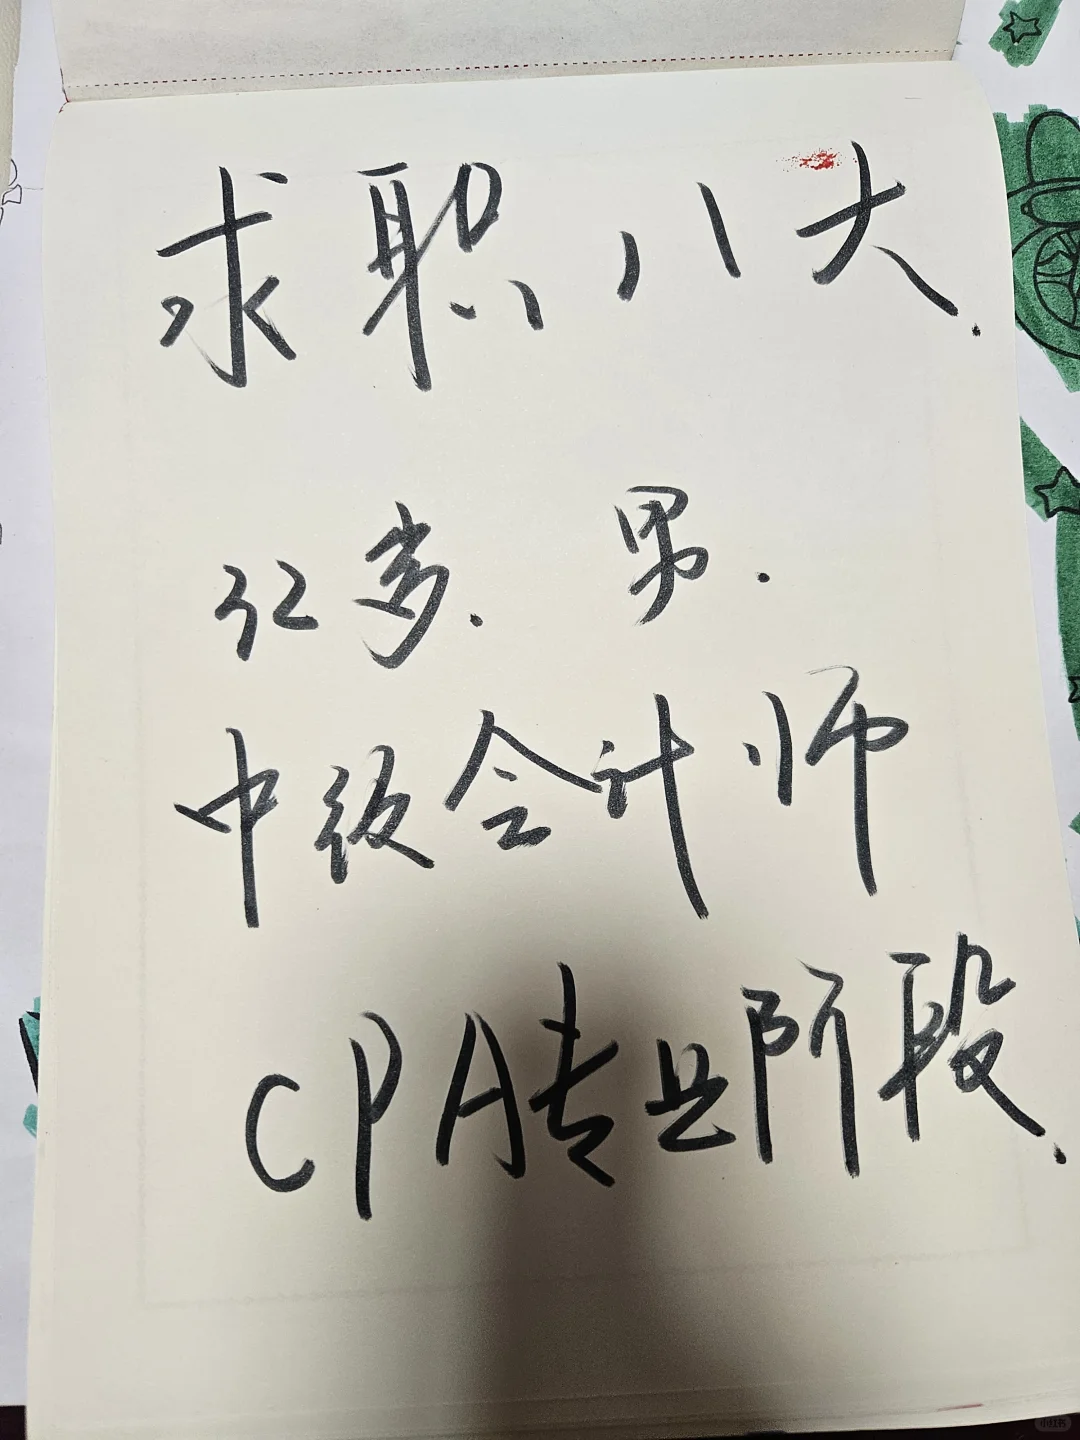 求职八大.
32岁.男.
中级会计师
CPA专业阶段.